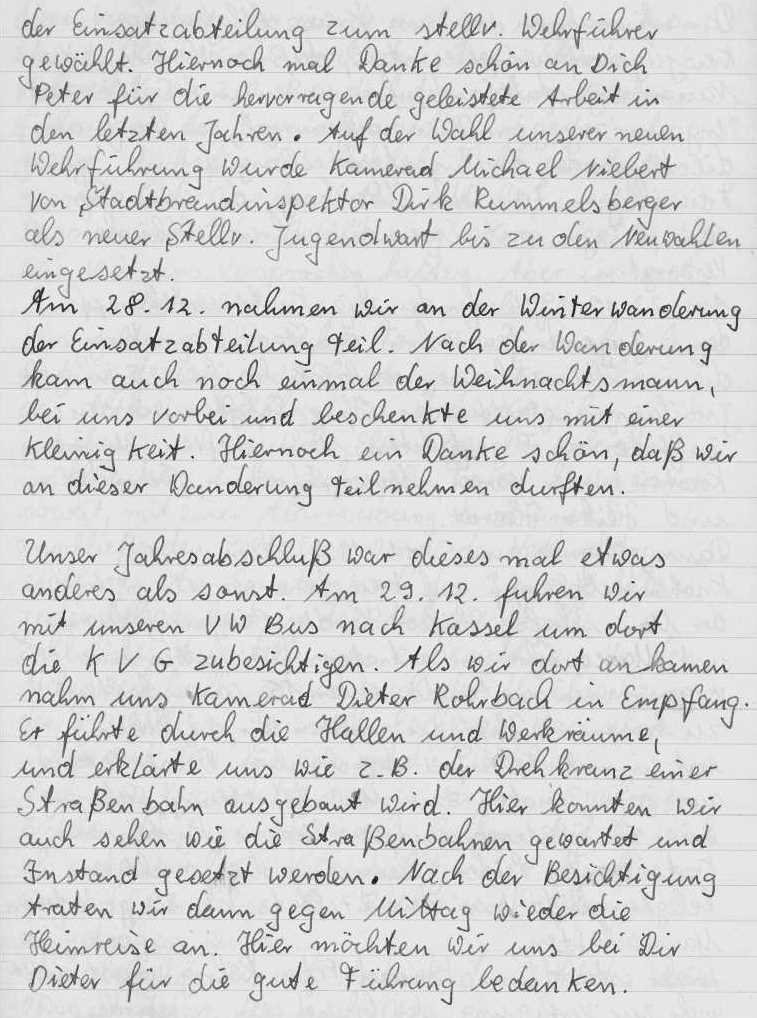 der Einsatzabteilung zum stellv. Wehrführer
gewählt. Hiernoch mal Danke schön an Dich
Peter für die hervorragende geleistete Arbeit in
den letzten Jahren. Auf der Wahl unserer neuen
Wehrführung wurde Kamerad Michael Niebert
von Stadtbrandinspektor Dirk Rummelsberger
als neuer Stellv. Jugendwart bis zu den Neuwahlen
eingesetzt.
Am 28.12. nahmen wir an der Winterwanderung
der Einsatzabteilung teil. Nach der Wanderung
kam auch noch einmal der Weihnachtsmann,
bei uns vorbei und beschenkte uns mit einer
Kleinigkeit. Hiernoch ein Danke schön, daß wir
an dieser Wanderung teilnehmen durften.
Unser Jahresabschluß war dieses mal etwas
anderes als sonst. Am 29.12. fuhren wir
mit unseren VW Bus nach Kassel um dort
die K V G zubesichtigen. Als wir dort an kamen
nahm uns Kamerad Dieter Rohrbach in Empfang.
Er führte durch die Hallen und Werkräume,
und erklärte uns wie z.B. der Drehkranz einer
Straßenbahn ausgebaut wird. Hier konnten wir
auch sehen wie die Straßenbahnen gewartet und
Instand gesetzt werden. Nach der Besichtigung
traten wir dann gegen Mittag wieder die
Heimreise an. Hier möchten wir uns bei Dir
Dieter für die gute Führung bedanken.